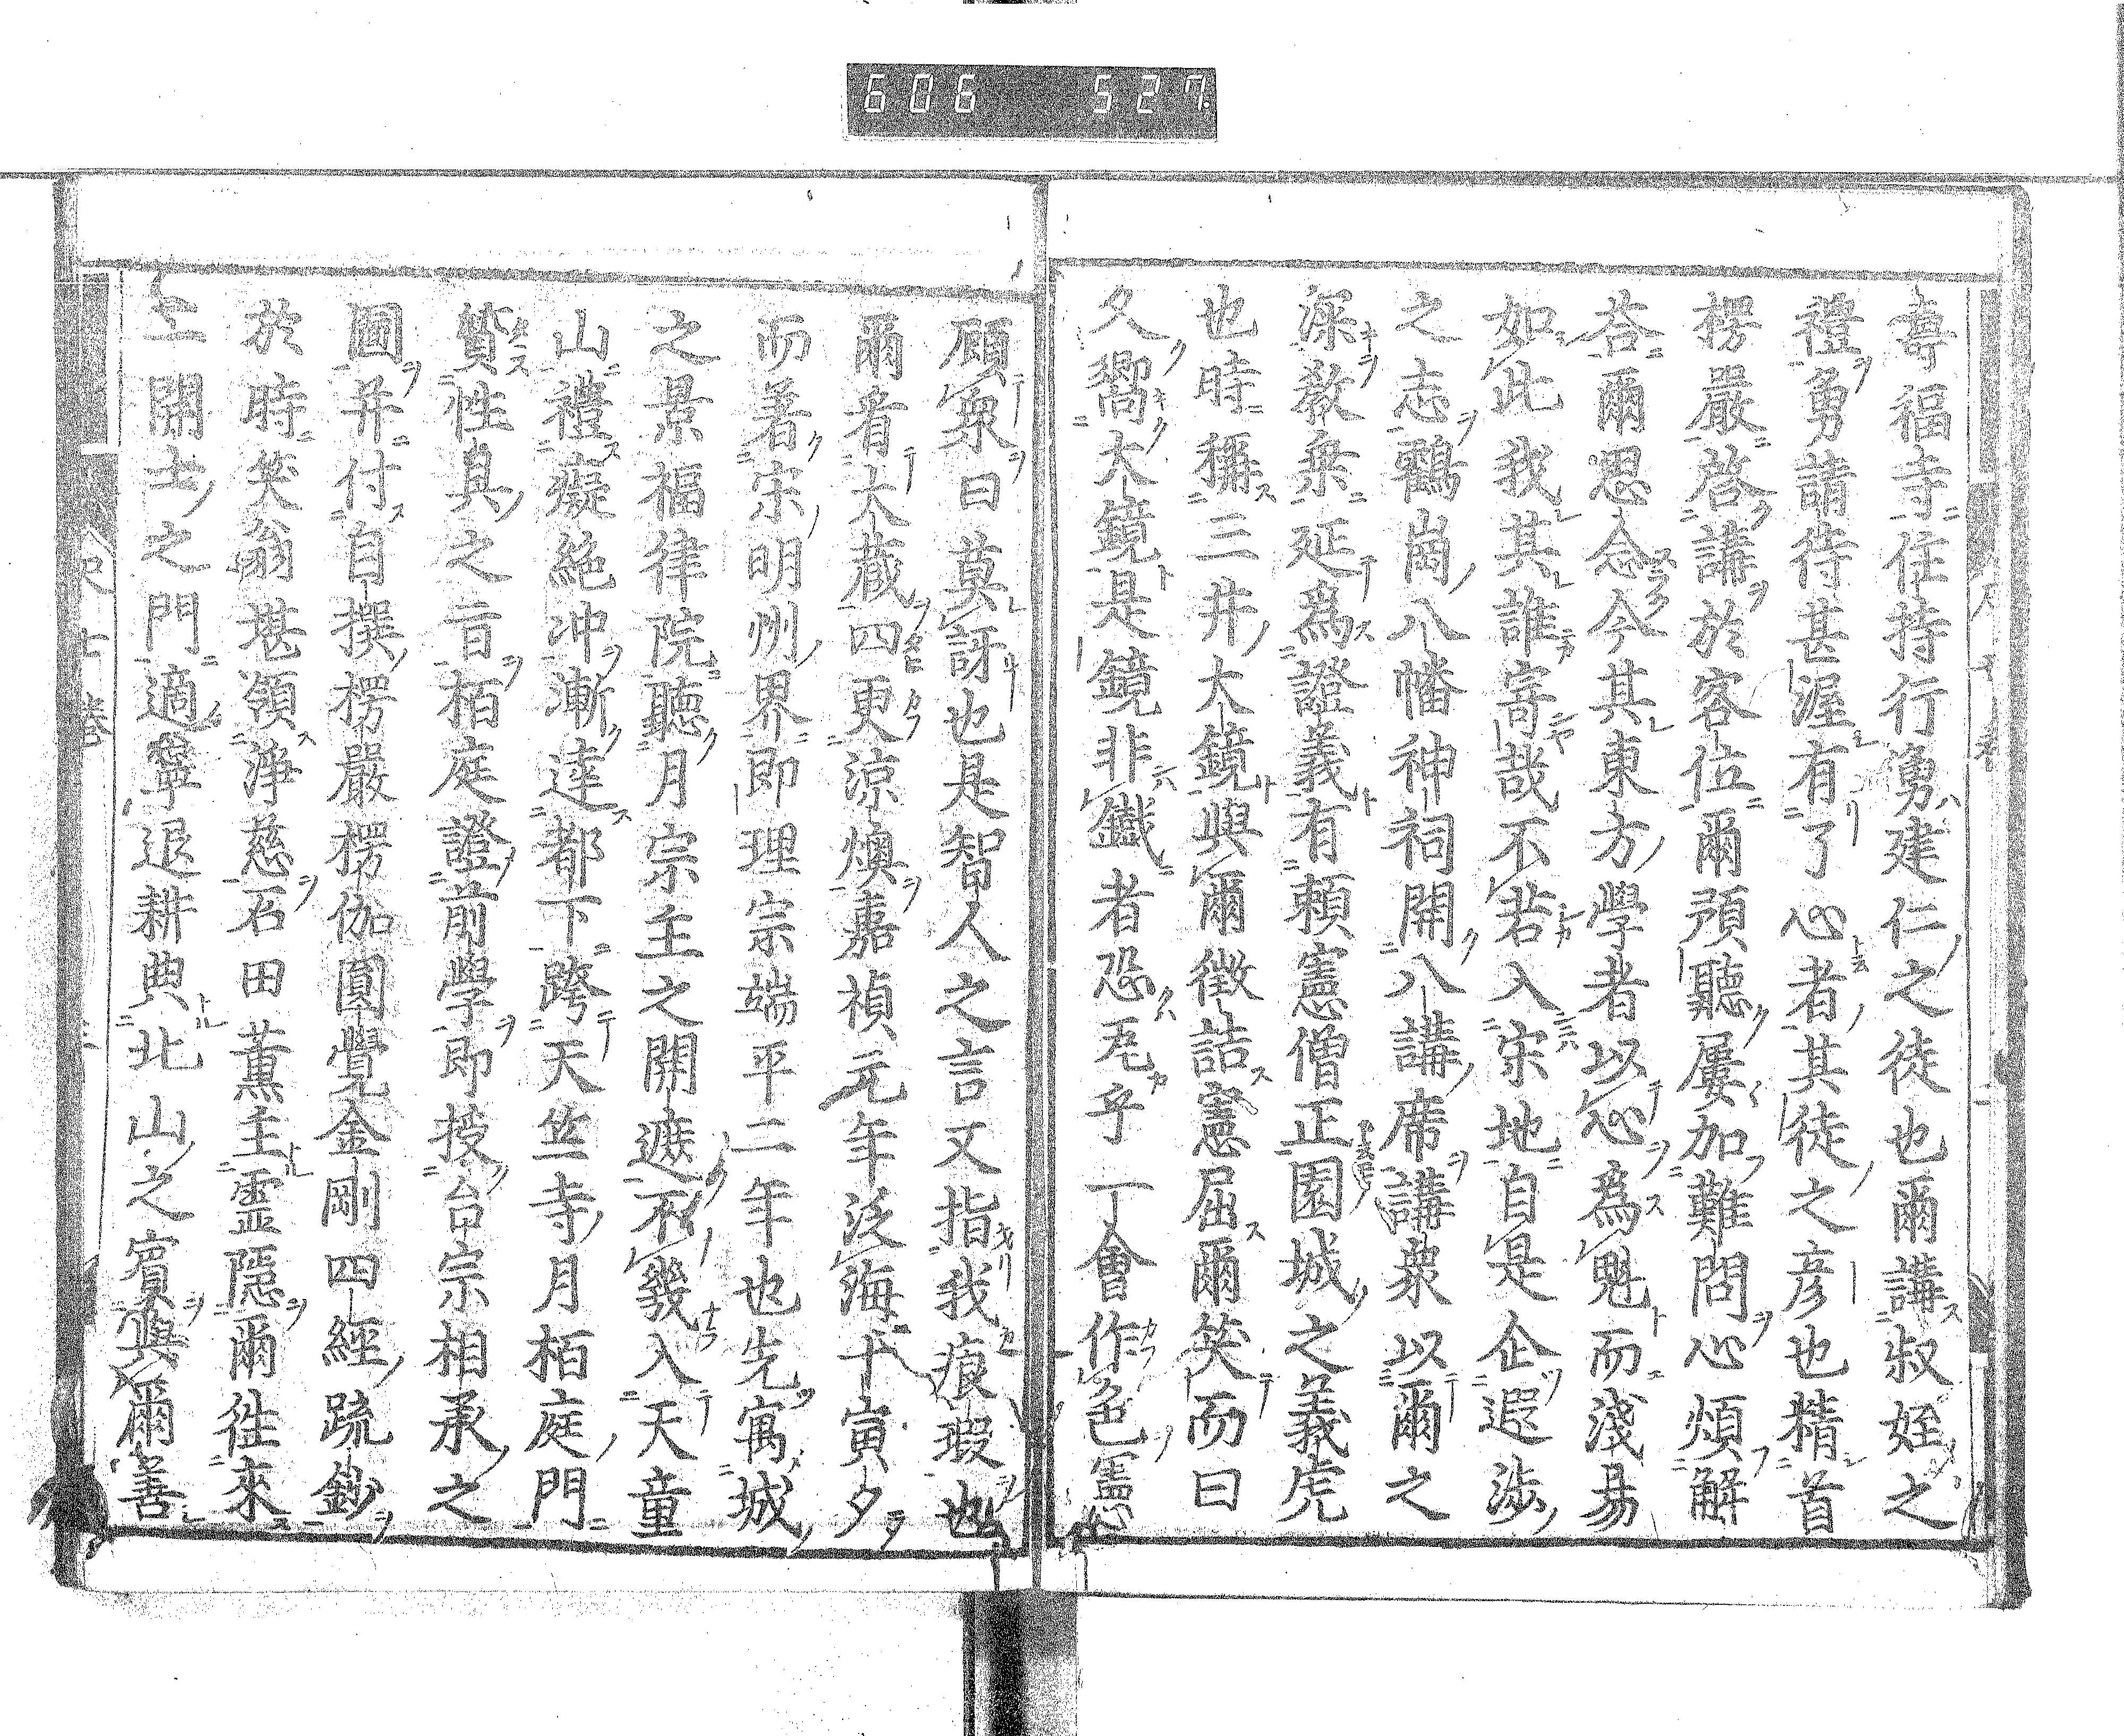 606 527
壽福寺住持行勇建仁之徒也爾講叔姪之
禮勇請待甚渥有了心者其徒之彦也精首
楞嚴啓講於客位爾預聽屢加難問心煩解
荅爾思念今其東方學者以心爲魁而淺易
如此我其誰寄哉不若入宋地自是企遐渉
之志鸖崗八幡神祠開八講席講衆以爾之
深教衆延爲證義有頼憲僧正園城之義虎
也時稱三井大鏡與爾徴詰憲屈爾笑而曰
久嚮大鏡是鏡非鐵者恐瓦乎一會作色憲
顧衆曰莫訝也是智人之言又指我痕瑕也
爾看大蔵四更涼燠嘉禎元年泛海十寅夕
而著宋明州界即理宗端平二年也先寓城
之景福律院聽月宗主之開遮不幾入天童
山禮癡絶冲漸達都下跨天竺寺月栢庭門
贄性具之旨栢庭證前學即授台宗相承之
圖并付自撰楞嚴楞伽圓覺金剛四經疏鈔
於時笑翁堪領淨慈石田薫主霊隱爾徃來
二開士之門適寧退耕典北山之賓與爾善